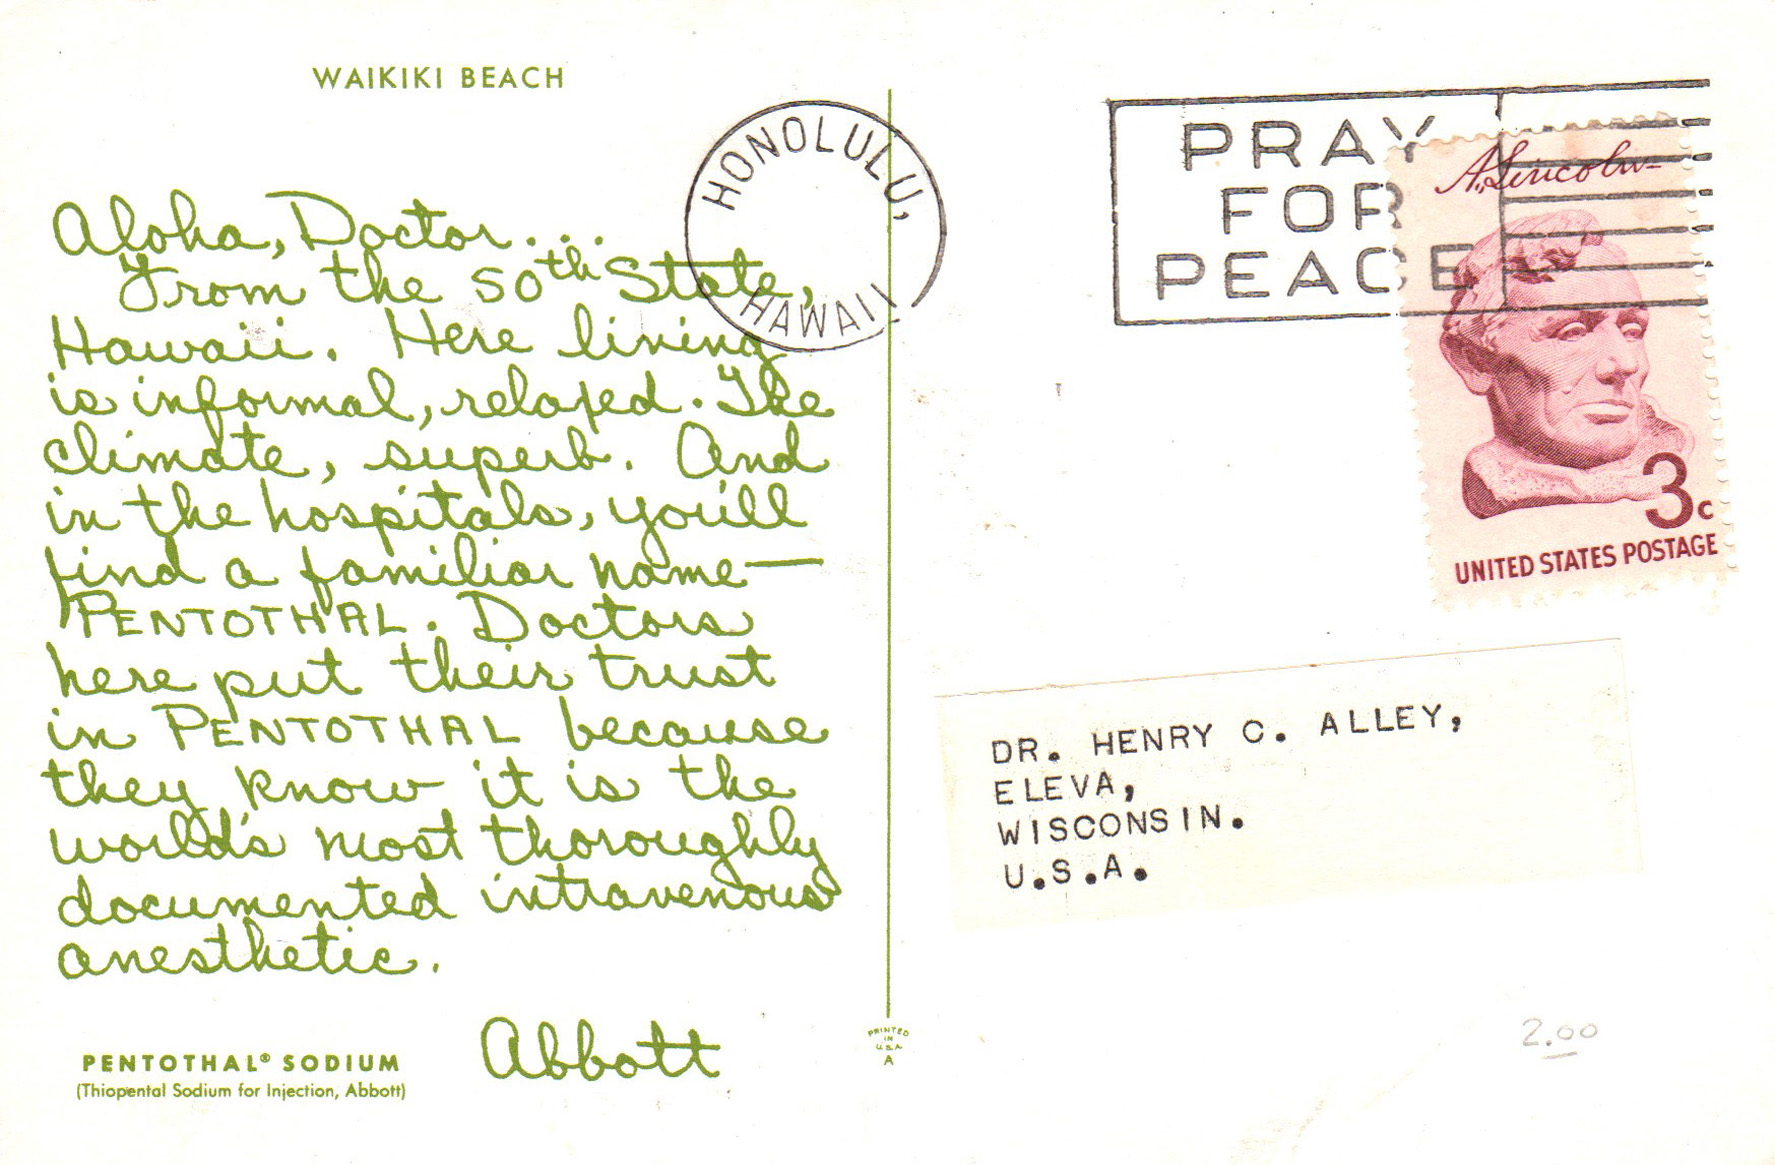 WAIKIKI BEACH
Aloha, Doctor...
From the 50th State,
Hawaii. Here living
is informal, relaxed. The
climate, superb. And
in the hospitals, you'll
find a familiar name—
PENTOTHAL. Doctors
here put their trust
in PENTOTHAL because
they know it is the
world's most thoroughly
documented intravenous
anesthetic.
Abbott
PENTOTHAL® SODIUM
(Thiopental Sodium for Injection, Abbott)
PRINTED
IN
U.S.A.
A
HONOLULU,
HAWAII
PRAY
FOR
PEACE
A. Lincoln
3c
UNITED STATES POSTAGE
DR. HENRY C. ALLEY,
ELEVA,
WISCONSIN.
U.S.A.
2.00